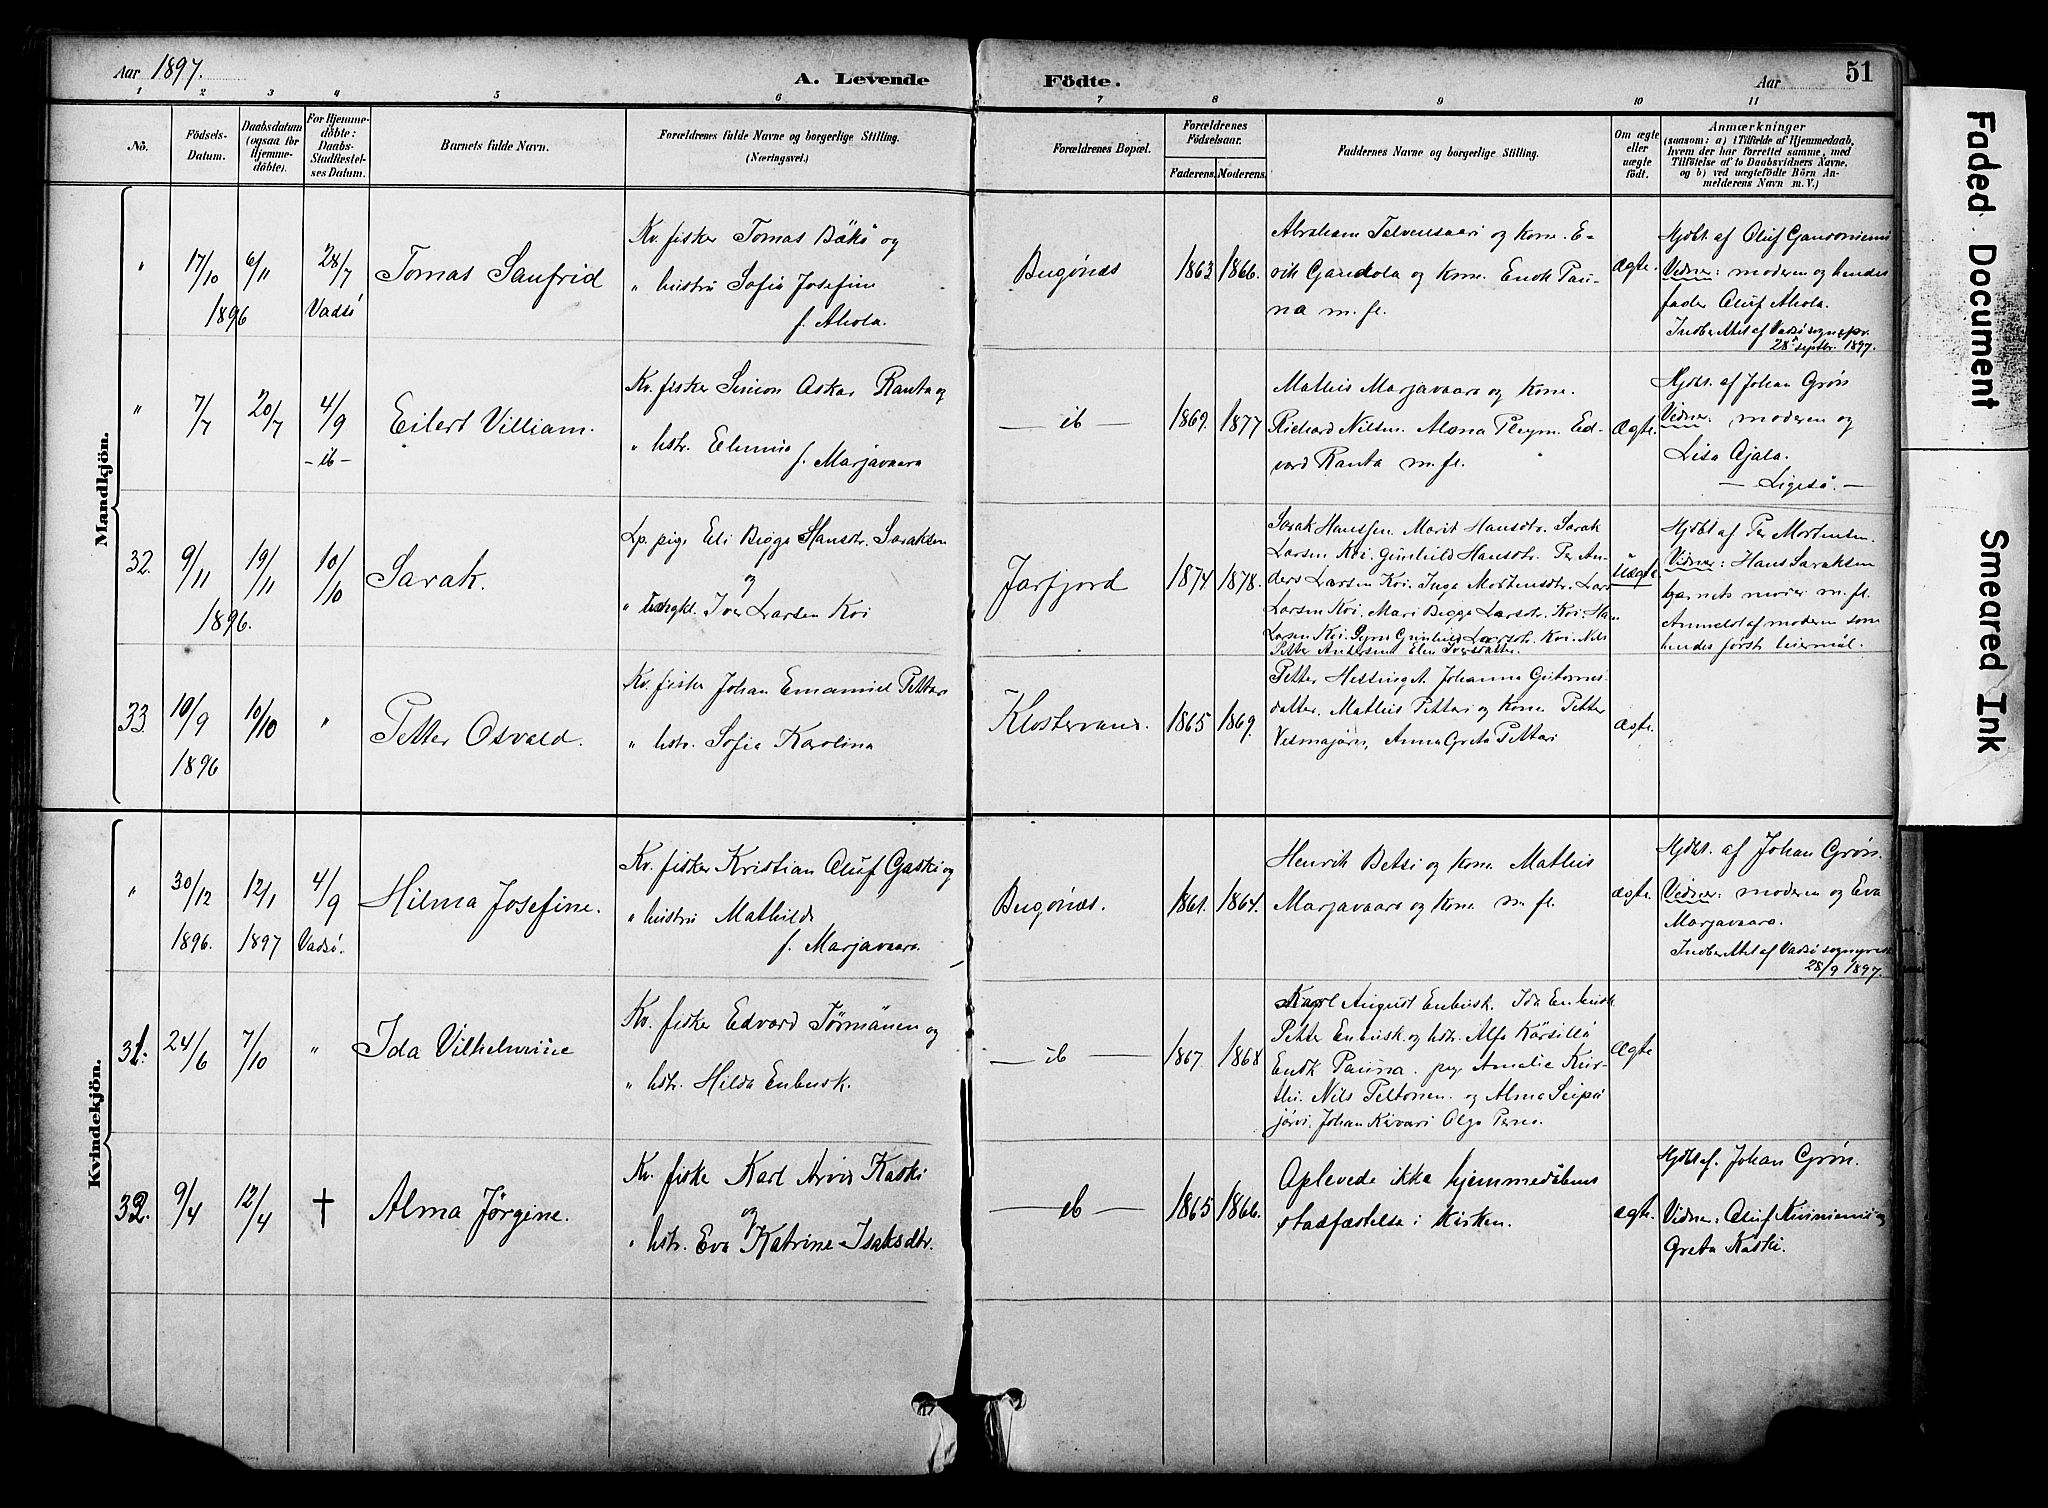 Aar 1897.
A. Levende
Födte.
Aar
51
1
2
3
4
5
6
7
8
9
10
11
No.
Födsels-
Datum.
Daabsdatum
(ogsaa for
Hjemme-
döbte).
For Hjemme-
döbte:
Daabs-
Stadfæstel-
ses Datum.
Barnets fulde Navn.
Forældrenes fulde Navne og borgerlige Stilling.
(Næringsvei.)
Forældrenes Bopæl.
Forældrenes
Födselsaar.
Faderens.
Moderens.
Faddernes Navne og borgerlige Stilling.
Om ægte
eller
uægte
födt.
Anmærkninger
(saasom: a) i Tilfælde af Hjemmedaab,
hvem der har forrettet samme, med
Tilföielse af to Daabsvidners Navne,
og b) ved uægtefödte Börn An-
melderens Navn m. V.)
Mandkjön.
"
17/10
1896
6/11
28/7
Vadsö
Tomas Sanfrid
Kv. fisker Tomas Bäkö og
" hustru Sofie Josefine
f. Ahola.
Bugönäs
1863
1866.
Abraham Talvensaari og Kone. E-
rik Gandola og Kone. Endk Pau-
na m. fl.
Ægte.
Hjdbt. af Oluf
Vidner: moderen og hendes
fader Oluf Ahola.
Indberettet af Vadsö sognepr.
28 septbr. 1897.
"
7/7
20/7
4/9
- ib -
Eilert Villiam.
Kv. fisker Simon Askar Ranta og
" hstr. f. Marjavaara
- ib -
1869.
1877
Mathis Marjavaara og Kone.
Richard Nilsen. Alma Pleym. Ed-
vard Ranta m. fl.
Ægte.
Hjdbt. af Johan Grön
Vidner: moderen og
Lisa Ojala.
- Ligeså. -
32.
9/11
1896.
19/11
10/10
Sarak.
Lp. pige Eli Bigga Hansdtr. Saraksen
og
" Ungkl. Iver Larsen Koi
Jarfjord
1874.
1878.
Sarak Hanssen. Marit Hansdtr. Sarak
Larsen Koi. Gunhild Hansdtr. Per An-
ders Larsen Koi. Inga Mortensdtr. Lars
Larsen Koi. Mari Bigga Larsdtr. Koi. Han
Larsen Koi. Gunhild Larsdtr. Koi. Nils
Petter Andersen Elen Iversdatter.
Uægte.
Hjdbt af Per Mortensen.
Vidner: Hans Saraksen
barnets moder m. fl.
Anmeldt af moderen som
hendes första leiermål.
33.
10/9
1896
10/10
"
Petter Osvald.
Kv. fisker Johan Emanuel Pettari
" hstr. Sofia Karolina
Klostervand.
1865
1869.
Petter Johanna
datter. Mathis Pettari og Kone. Petter
Vesmajärvi, Anna Greta Pettari
Ægte.
Kvindekjön.
"
30/12
1896.
12/1
1897
4/9
Vadsö.
Hilma Josefine.
Kv. fisker Kristian Oluf Gaski og
" hustru Mathilde
f. Marjavaara.
Bugönäs.
1861.
1864.
Henrik Betsi og Kone. Mathis
Marjavaara og Kone m. fl.
Ægte.
Hjdbt. af Johan Grön.
Vidner: moderen og Eva
Marjavaara.
Indberettet af Vadsö sognepræst
28/9 1897.
31.
24/6
7/10
"
Ida Vilhelmine
Kv. fisker Edvard Törmänen og
" hstr. Hilda Enbusk.
- ib -
1867.
1868
Karl August Enbusk. Ida Enbusk
Petter Enbusk og hstr. Alfa
Endk Pauna. pige Amalie
Nils Peltonen. og Alma Seipä
järvi. Johan Kivari Olga Perno.
Ægte
32.
9/4
12/4
†
Alma Jørgine.
Kv. fiske Karl Arvid Kaski
og
" hstr. Eva Katrine Isaksdtr.
- ib -
1865
1866.
Oplevede ikke hjemmedåbens
stadfæstelse i Kirken.
Ægte.
Hjdbt af. Johan Grön.
Vidner: Oluf Kiviniemi og
Greta Kaski.
Faded Document
Smeared Ink